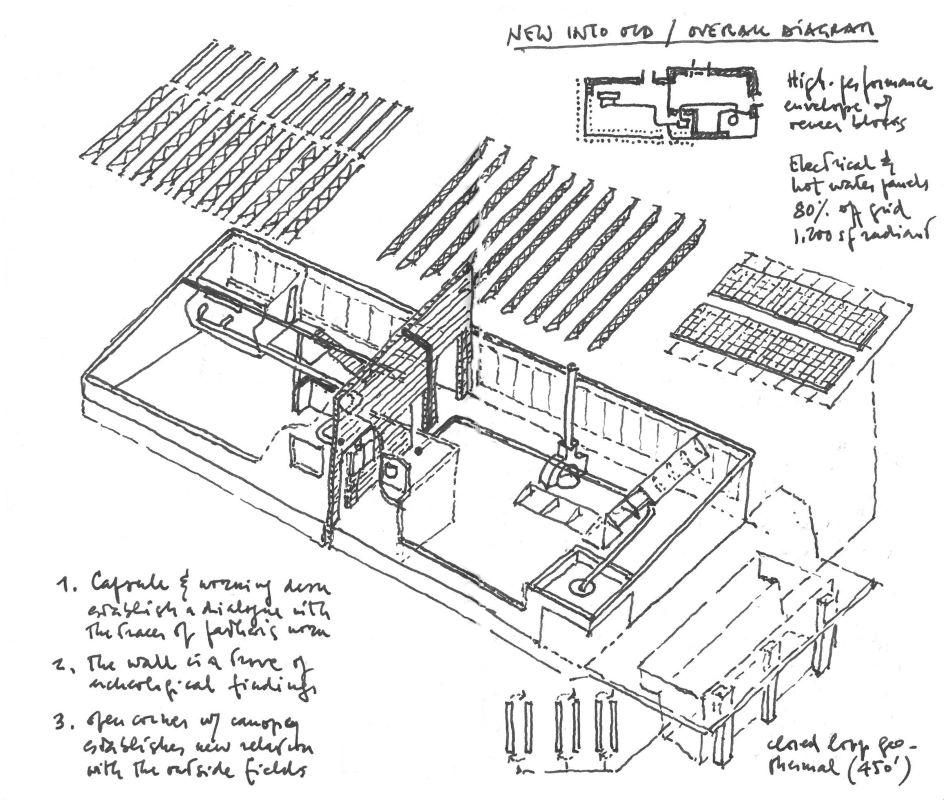 NEW INTO OLD / OVERALL DIAGRAM
High-performance
envelope w/
blocks
Electrical &
hot water panels
80% off grid
1,200 sf radiant
1. Capsule & working desk
establish a dialogue with
the traces of father's work
2. The wall is a trove of
archeological findings
3. open corner w/ canopy
establishes new relation
with the outside fields
closed loop geo-
thermal (450')